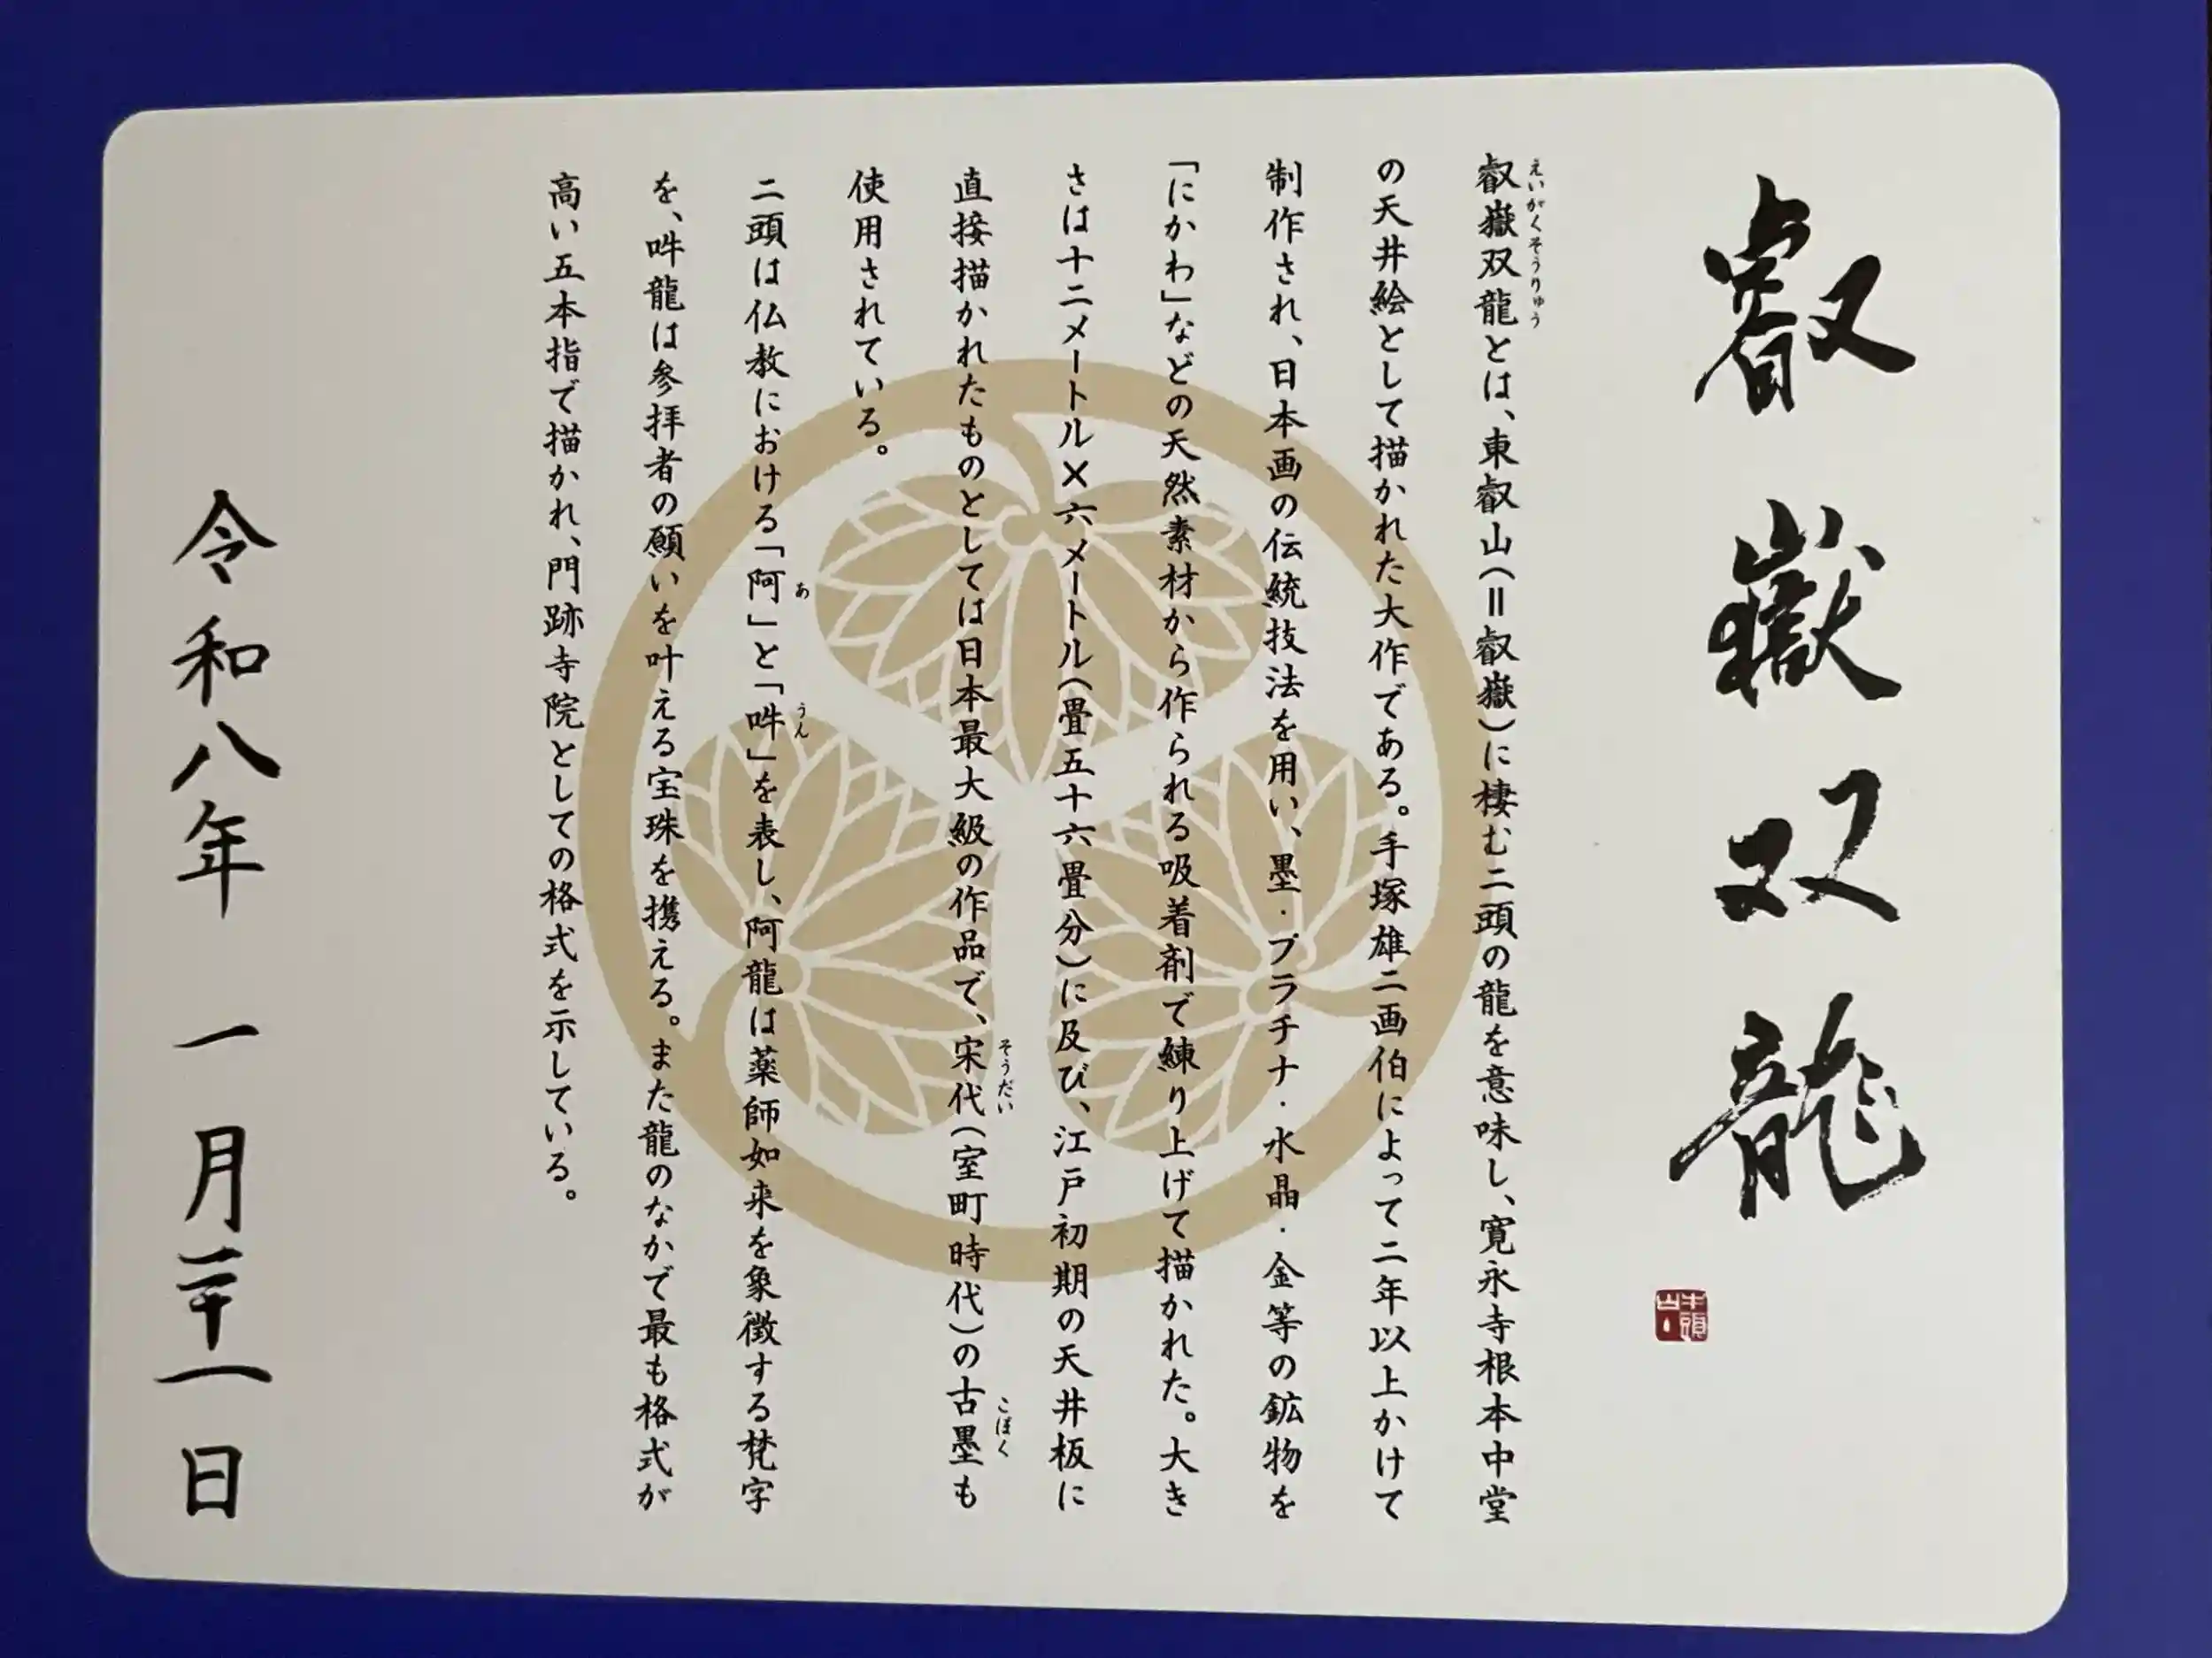 叡嶽双龍
叡嶽双龍とは、東叡山(=叡嶽)に棲む二頭の龍を意味し、寛永寺根本中堂
えいがくそうりゅう
の天井絵として描かれた大作である。手塚雄二画伯によって二年以上かけて
制作され、日本画の伝統技法を用い、墨・プラチナ・水晶・金等の鉱物を
「にかわ」などの天然素材から作られる吸着剤で練り上げて描かれた。大き
さは十二メートル×六メートル(畳五十六畳分)に及び、江戸初期の天井板に
直接描かれたものとしては日本最大級の作品で、宋代(室町時代)の古墨も
そうだい
こぼく
使用されている。
二頭は仏教における「阿」と「吽」を表し、阿龍は薬師如来を象徴する梵字
あ
うん
を、吽龍は参拝者の願いを叶える宝珠を携える。また龍のなかで最も格式が
高い五本指で描かれ、門跡寺院としての格式を示している。
令和八年 一月二十一日